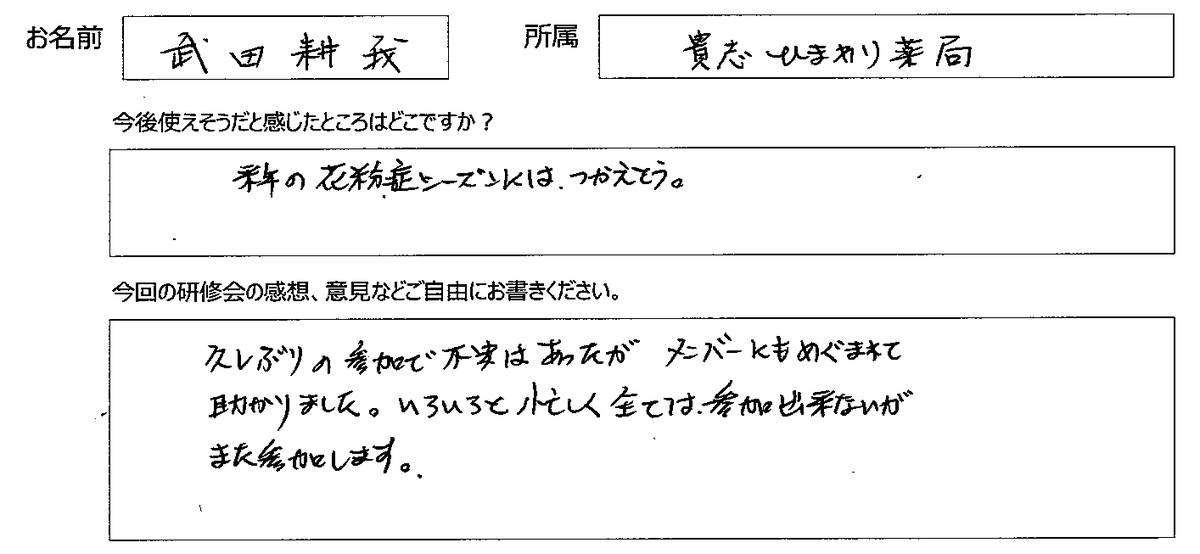 お名前 武田耕我 所属 貴志ひまわり薬局
今後使えそうだと感じたところはどこですか?
来年の花粉症シーズンには、つかえそう。
今回の研修会の感想、意見などご自由にお書きください。
久しぶりの参加で不安はあったが メンバーにもめぐまれて
助かりました。いろいろと忙しく全ては、参加出来ないが
また参加します。